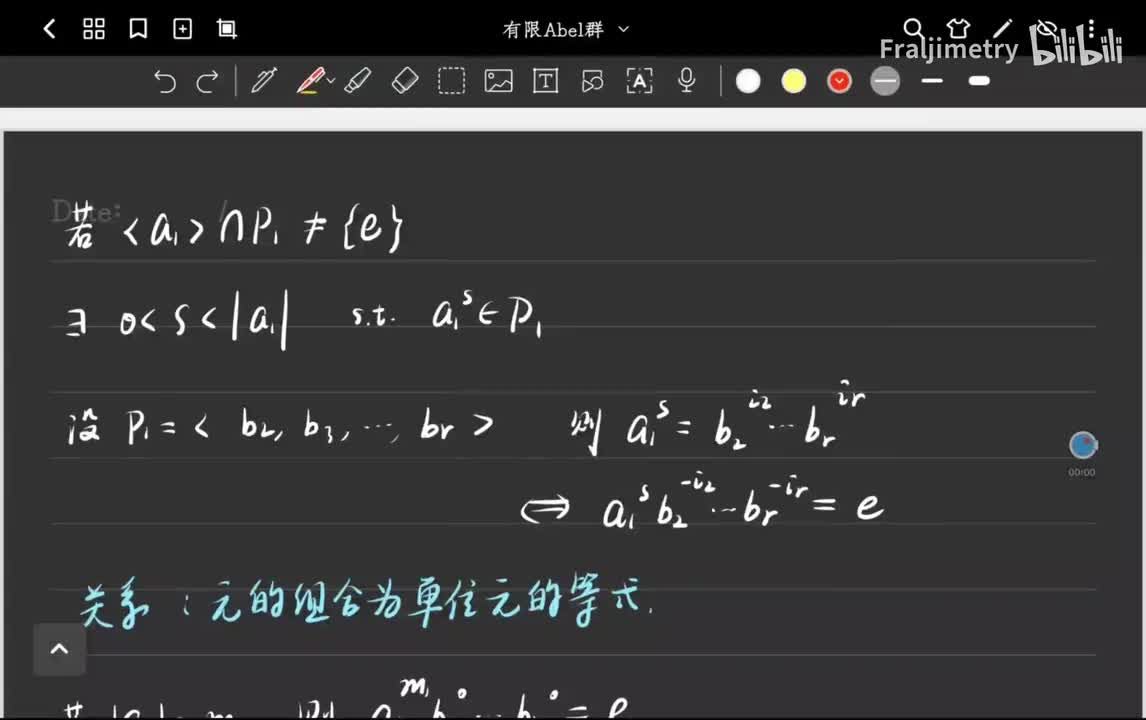 有限Abel群
Fraljimetry bilibili
Date: /
若 <a₁> ∩ P₁ ≠ {e}
∃ 0 < s < |a₁| s.t. a₁^s ∈ P₁
设 P₁ = < b₂, b₃, ..., br > 则 a₁^s = b₂^i₂ ... br^ir
⟺ a₁^s b₂^-i₂ ... br^-ir = e
00:00
关系：元的组合为单位元的等式.